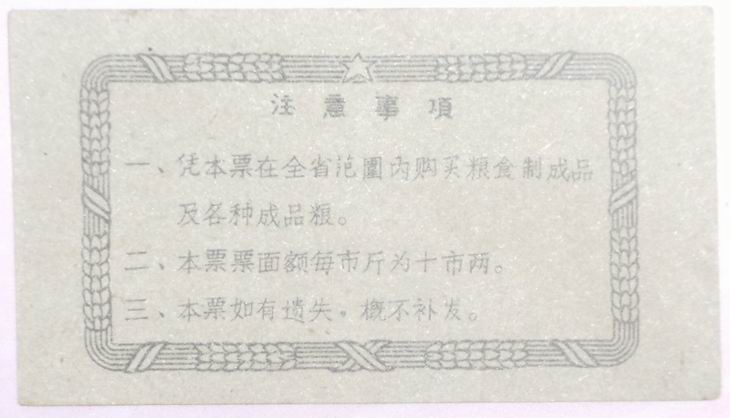 注意事項
一、凭本票在全省范圍內购买粮食制成品
及各种成品粮。
二、本票票面额每市斤为十市两。
三、本票如有遗失，概不补发。